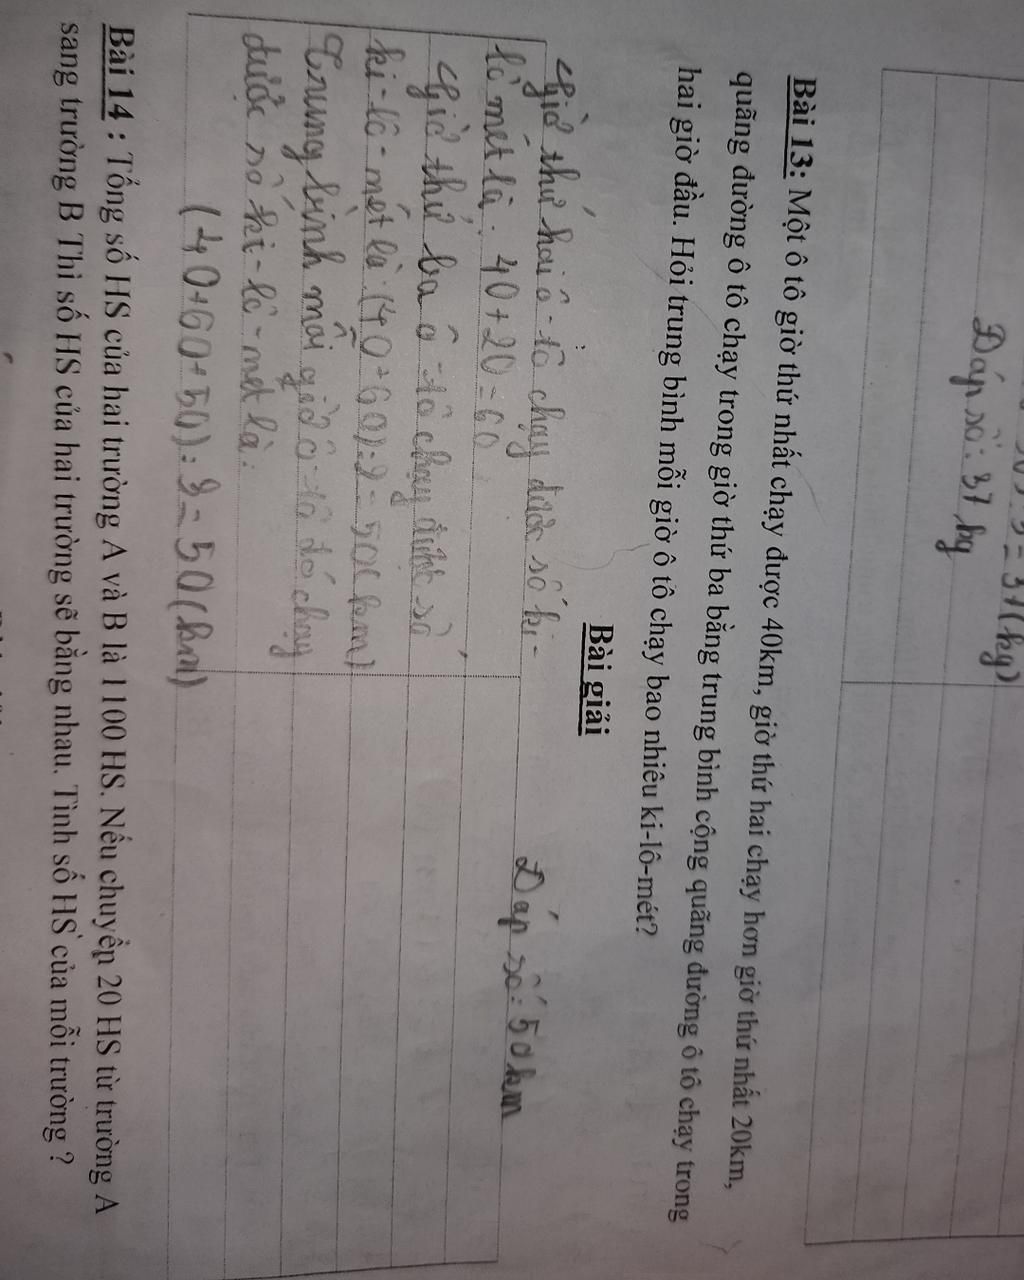 = 37(kg)
Đáp số: 37 kg
Bài 13: Một ô tô giờ thứ nhất chạy được 40km, giờ thứ hai chạy hơn giờ thứ nhất 20km,
quãng đường ô tô chạy trong giờ thứ ba bằng trung bình cộng quãng đường ô tô chạy trong
hai giờ đầu. Hỏi trung bình mỗi giờ ô tô chạy bao nhiêu ki-lô-mét?
Bài giải
Giờ thứ hai ô-tô chạy được số ki-
lô mét là: 40+20=60
Giờ thứ ba ô-tô chạy được số
ki-lô-mét là: (40+60):2=50(km)
Trung bình mỗi giờ ô-tô đó chạy
được số ki-lô-mét là:
(40+60+50):3=50(km)
Đáp số: 50km
Bài 14 : Tổng số HS của hai trường A và B là 1100 HS. Nếu chuyển 20 HS từ trường A
sang trường B Thì số HS của hai trường sẽ bằng nhau. Tình số HS của mỗi trường ?